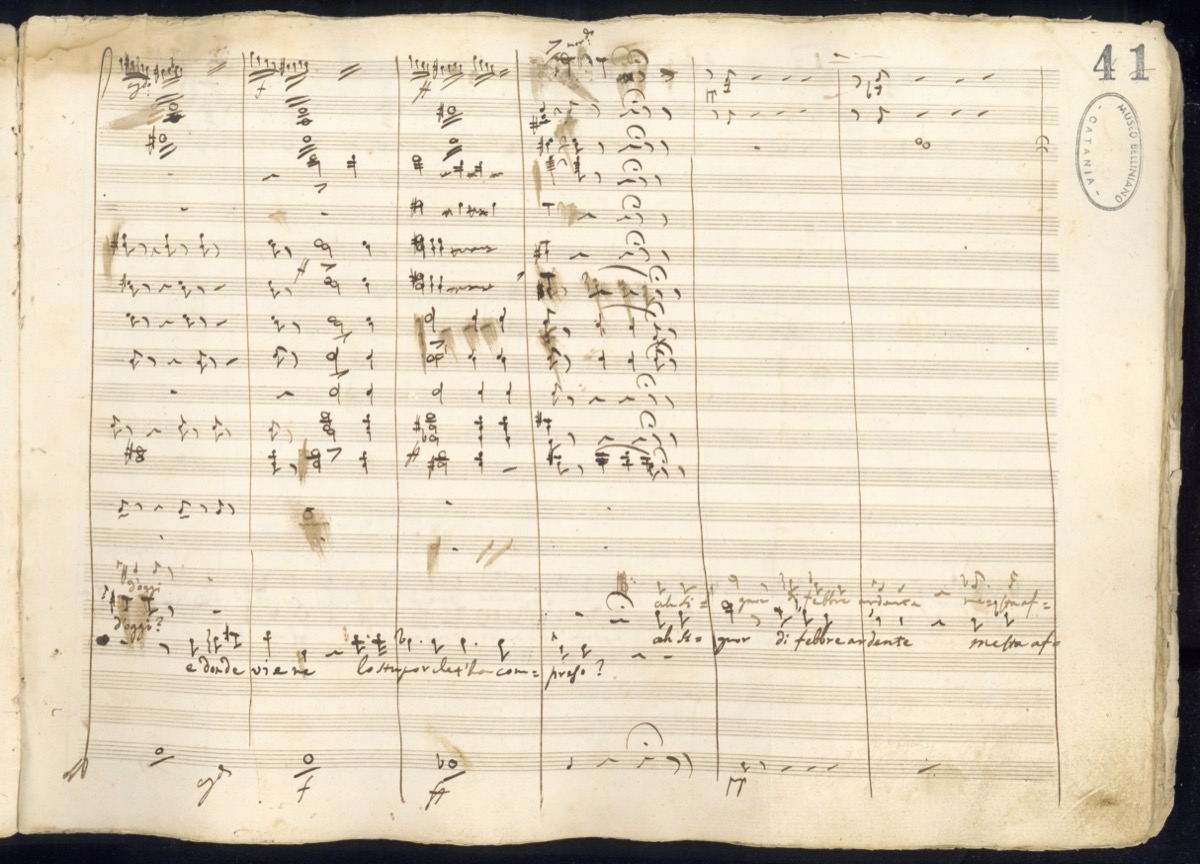 41
MUSEO BELLINIANO
- CATANIA -
f
ff
d'oggi
ah Si = gnor di febbre ardente
d'oggi?
ah Si = gnor di febbre ardente mesta af=
e donde viene lo stupor che t'ha com= preso?
f
ff